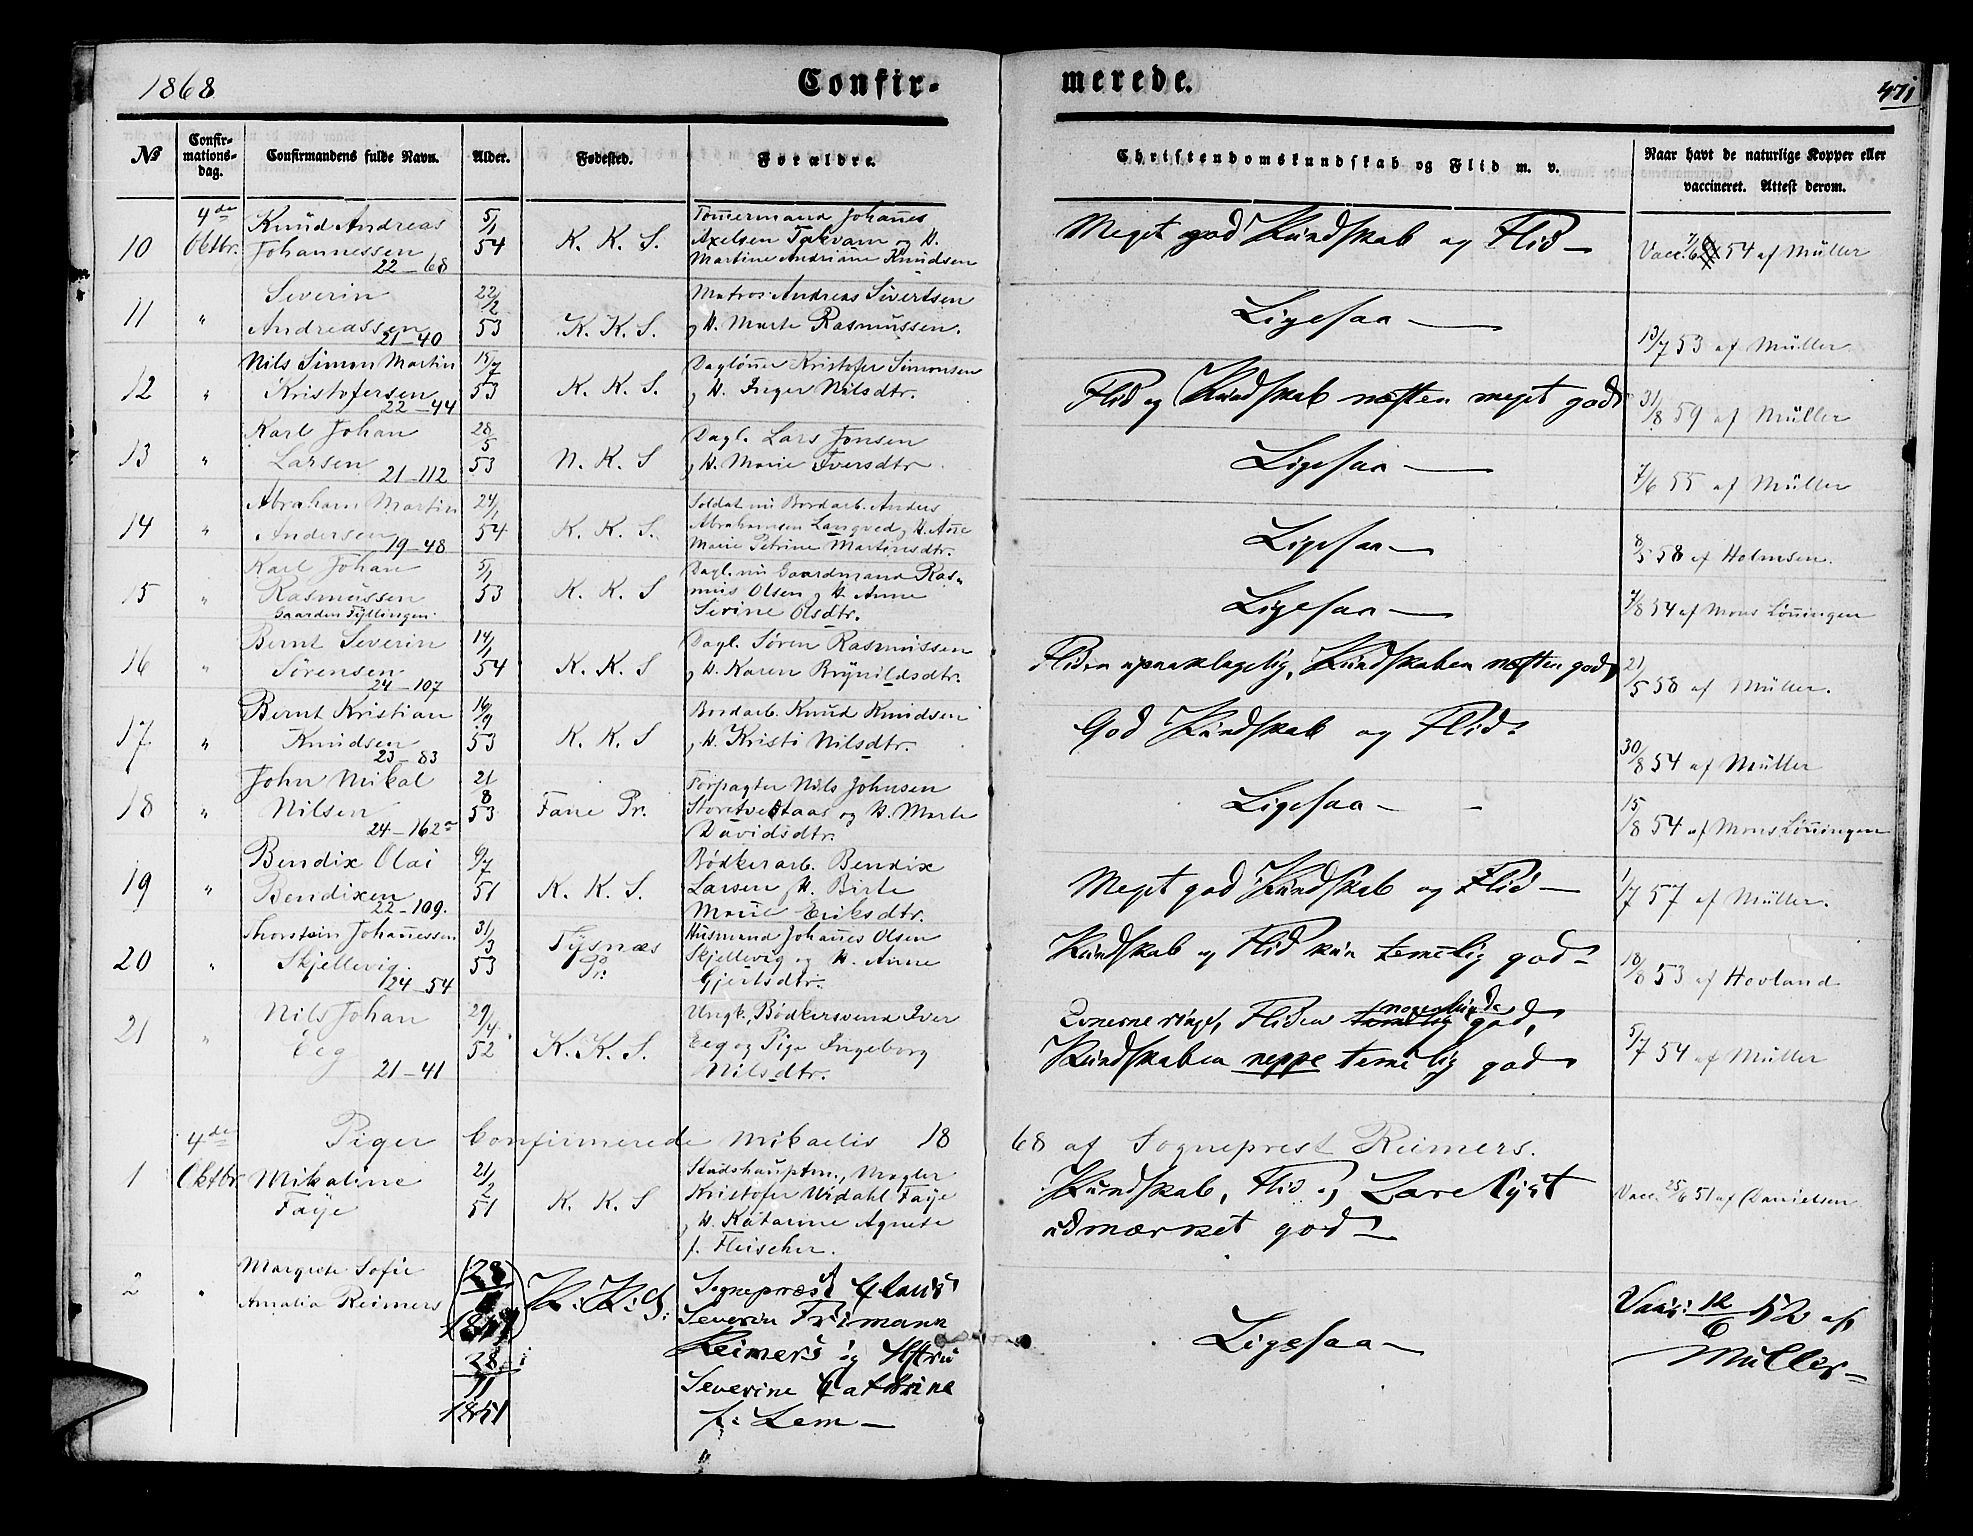 1868 Confir- merede. 471
No Confir-mations-dag. Confirmandens fulde Navn. Alder. Fødested. Forældre. Christendomskundskab og Flid m. v. Naar havt de naturlige Kopper eller vaccineret. Attest derom.
4de Knud Andreas 5/1 Tømmermand Johannes
10 Oktbr. Johannessen 54 K. K. S. Axelsen Takvam og H. Meget god Kundskab og Flid — Vacc. 7/6 54 af Müller
22-68 Martine Andriane Knudsen
Severin 22/2 Matros Andreas Sivertsen
11 " Andreassen 53 K. K. S. og H. Marte Rasmussen. Ligesaa — 13/7 53 af Müller
21-40
Nils Simon Martin 15/7 Daglönner Kristofer Simonsen
12 " Kristofersen 53 K. K. S. og H. Inger Nilsdtr. Flid og Kundskab næsten meget god 31/8 59 af Müller
22-44
Karl Johan 28/5 Dagl. Lars Jonsen
13 " Larsen 53 N. K. S og H. Marie Iversdtr. Ligesaa — 7/6 55 af Müller
21-112
Abraham Martin 24/1 Soldat nu Bordarb. Anders
14 " Andersen 54 K. K. S. Abrahamsen Langved og H. Anne Ligesaa — 8/5 58 af Holmsen.
19-48 Marie Petrine Martinsdtr.
Karl Johan 5/1 Dagl. nu Gaardmand Ras-
15 " Rasmussen 53 K. K. S mus Olsen og H. Anne Ligesaa — 7/8 54 af Mons Lönningen
Gaarden Fyllingen. Sevine Olsdtr.
Bernt Severin 14/1 Dagl. Sören Rasmussen
16 " Sörensen 54 K. K. S og H. Karen Brynildsdtr. Fliden upaaklagelig, Kundskaben næsten god, 21/5 58 af Müller.
24-107
Bernt Kristian 16/9 Bordarb. Knud Knudsen
17. " Knudsen 53 K. K. S og H. Kristi Nilsdtr. God Kundskab og Flid. 30/8 54 af Müller
23-83
John Mikal 21/8 Forpagter Nils Johnsen
18 " Nilsen 53 Fane Pr. Storetvetstaas og H. Marte Ligesaa — 15/8 54 af Mons Lönningen
24-162 Davidsdtr.
Bendix Olai 9/7 Bödkerarb. Bendix
19 " Bendixen 51 K. K. S. Larsen og H. Birte Meget god Kundskab og Flid — 1/7 57 af Müller.
22-109. Marie Eriksdtr.
Thorstein Johannessen 31/3 Husmand Johannes Olsen
20 " Skjellevig. 53 Tysnæs Pr. Skjellevig og H. Anne Kundskab og Flid kun temelig god. 18/8 53 af Hovland
24-54 Gjertsdtr.
Nils Johan 29/4 Ungk., Bödkersvend Iver Evnerne ringe, Fliden temelig nogenlunde god,
21 " Eeg 52 K. K. S. Eeg og Pige Ingeborg Kundskaben neppe temelig god 5/7 54 af Müller
21-41 Nilsdtr.
4de Piger Confirmerede Mikaelis 1868 af Sogneprest Reimers.
1 Oktbr Mikaline 21/2 Stadshauptm., Mægler
Faÿe 51 K. K. S Kristofer Widahl Faÿe Kundskab, Flid og Lærelyst Vacc. 25/6 51 af Danielsen
og H. Katarine Agnete udmærket god
f. Fleischer.
2 " Margrete Sofie 28 Sognepræst Claus
Amalia Reimers K: K: S: Severin Friemann Ligesaa — Vacc: 12/6 52 af
28/11 Reimers og Hstru Müller —
1851 Severine Cathrine
f: Lem —